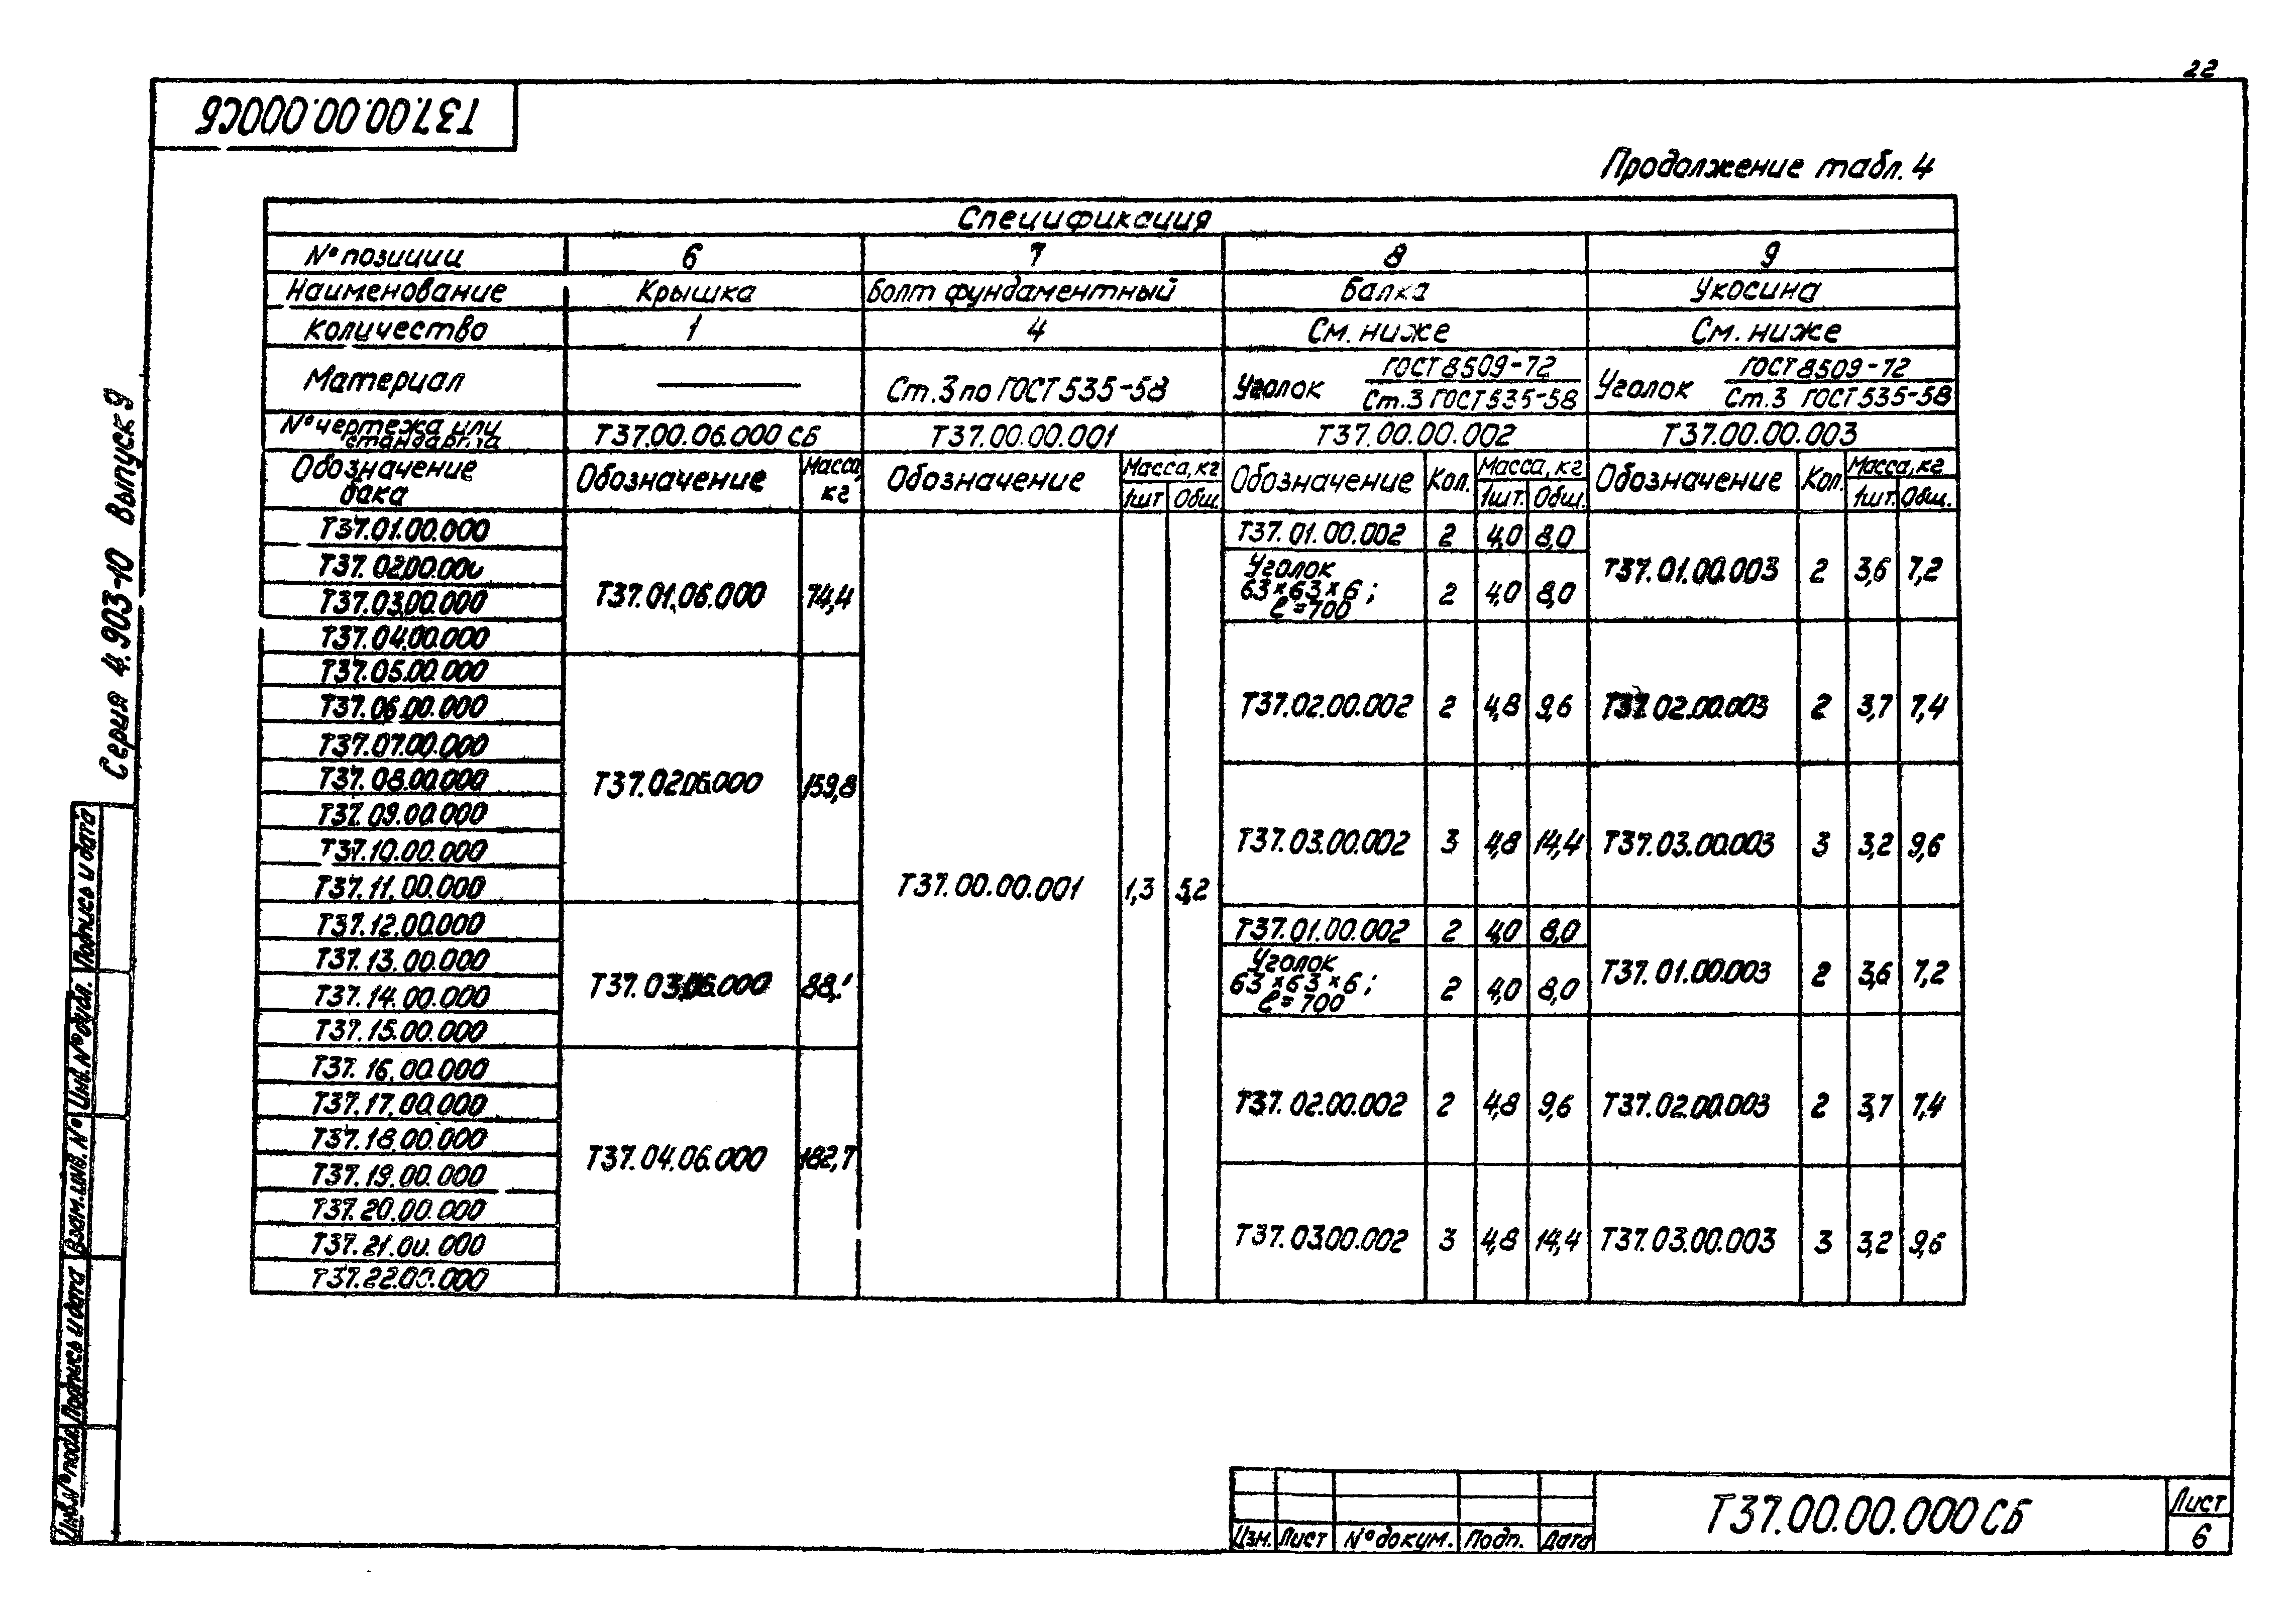 22
Т37.00.00.000СБ
Продолжение табл. 4
Спецификация
№ позиции 6 7 8 9
Наименование Крышка Болт фундаментный Балка Укосина
Количество 1 4 См. ниже См. ниже
Материал —— Ст.3 по ГОСТ 535-58 Уголок ГОСТ 8509-72 / Ст.3 ГОСТ 535-58 Уголок ГОСТ 8509-72 / Ст.3 ГОСТ 535-58
№ чертежа или стандарта Т37.00.06.000 СБ Т37.00.00.001 Т37.00.00.002 Т37.00.00.003
Обозначение бака Обозначение Масса, кг Обозначение Масса, кг 1шт Общ. Обозначение Кол. Масса, кг 1шт. Общ. Обозначение Кол. Масса, кг 1шт. Общ.
Т37.01.00.000
Т37.02.00.000
Т37.03.00.000
Т37.04.00.000
Т37.05.00.000
Т37.06.00.000
Т37.07.00.000
Т37.08.00.000
Т37.09.00.000
Т37.10.00.000
Т37.11.00.000
Т37.12.00.000
Т37.13.00.000
Т37.14.00.000
Т37.15.00.000
Т37.16.00.000
Т37.17.00.000
Т37.18.00.000
Т37.19.00.000
Т37.20.00.000
Т37.21.00.000
Т37.22.00.000
Т37.01.06.000 74,4
Т37.02.06.000 159,8
Т37.03.06.000
Т37.04.06.000 182,7
Т37.00.00.001 1,3 5,2
Т37.01.00.002 2 4,0 8,0
Уголок
63×63×6;
ℓ=700
2 4,0 8,0
Т37.02.00.002 2 4,8 9,6
Т37.03.00.002 3 4,8 14,4
Т37.01.00.002 2 4,0 8,0
Уголок
63×63×6;
ℓ=700
2 4,0 8,0
Т37.02.00.002 2 4,8 9,6
Т37.03.00.002 3 4,8 14,4
Т37.01.00.003 2 3,6 7,2
Т37.02.00.003 2 3,7 7,4
Т37.03.00.003 3 3,2 9,6
Т37.01.00.003 2 3,6 7,2
Т37.02.00.003 2 3,7 7,4
Т37.03.00.003 3 3,2 9,6
Серия 4.903-10 Выпуск 9
Инв.№ подл. Подпись и дата Взам.инв.№ Инв.№ дубл. Подпись и дата
Изм. Лист № докум. Подп. Дата
Т37.00.00.000 СБ
Лист
6